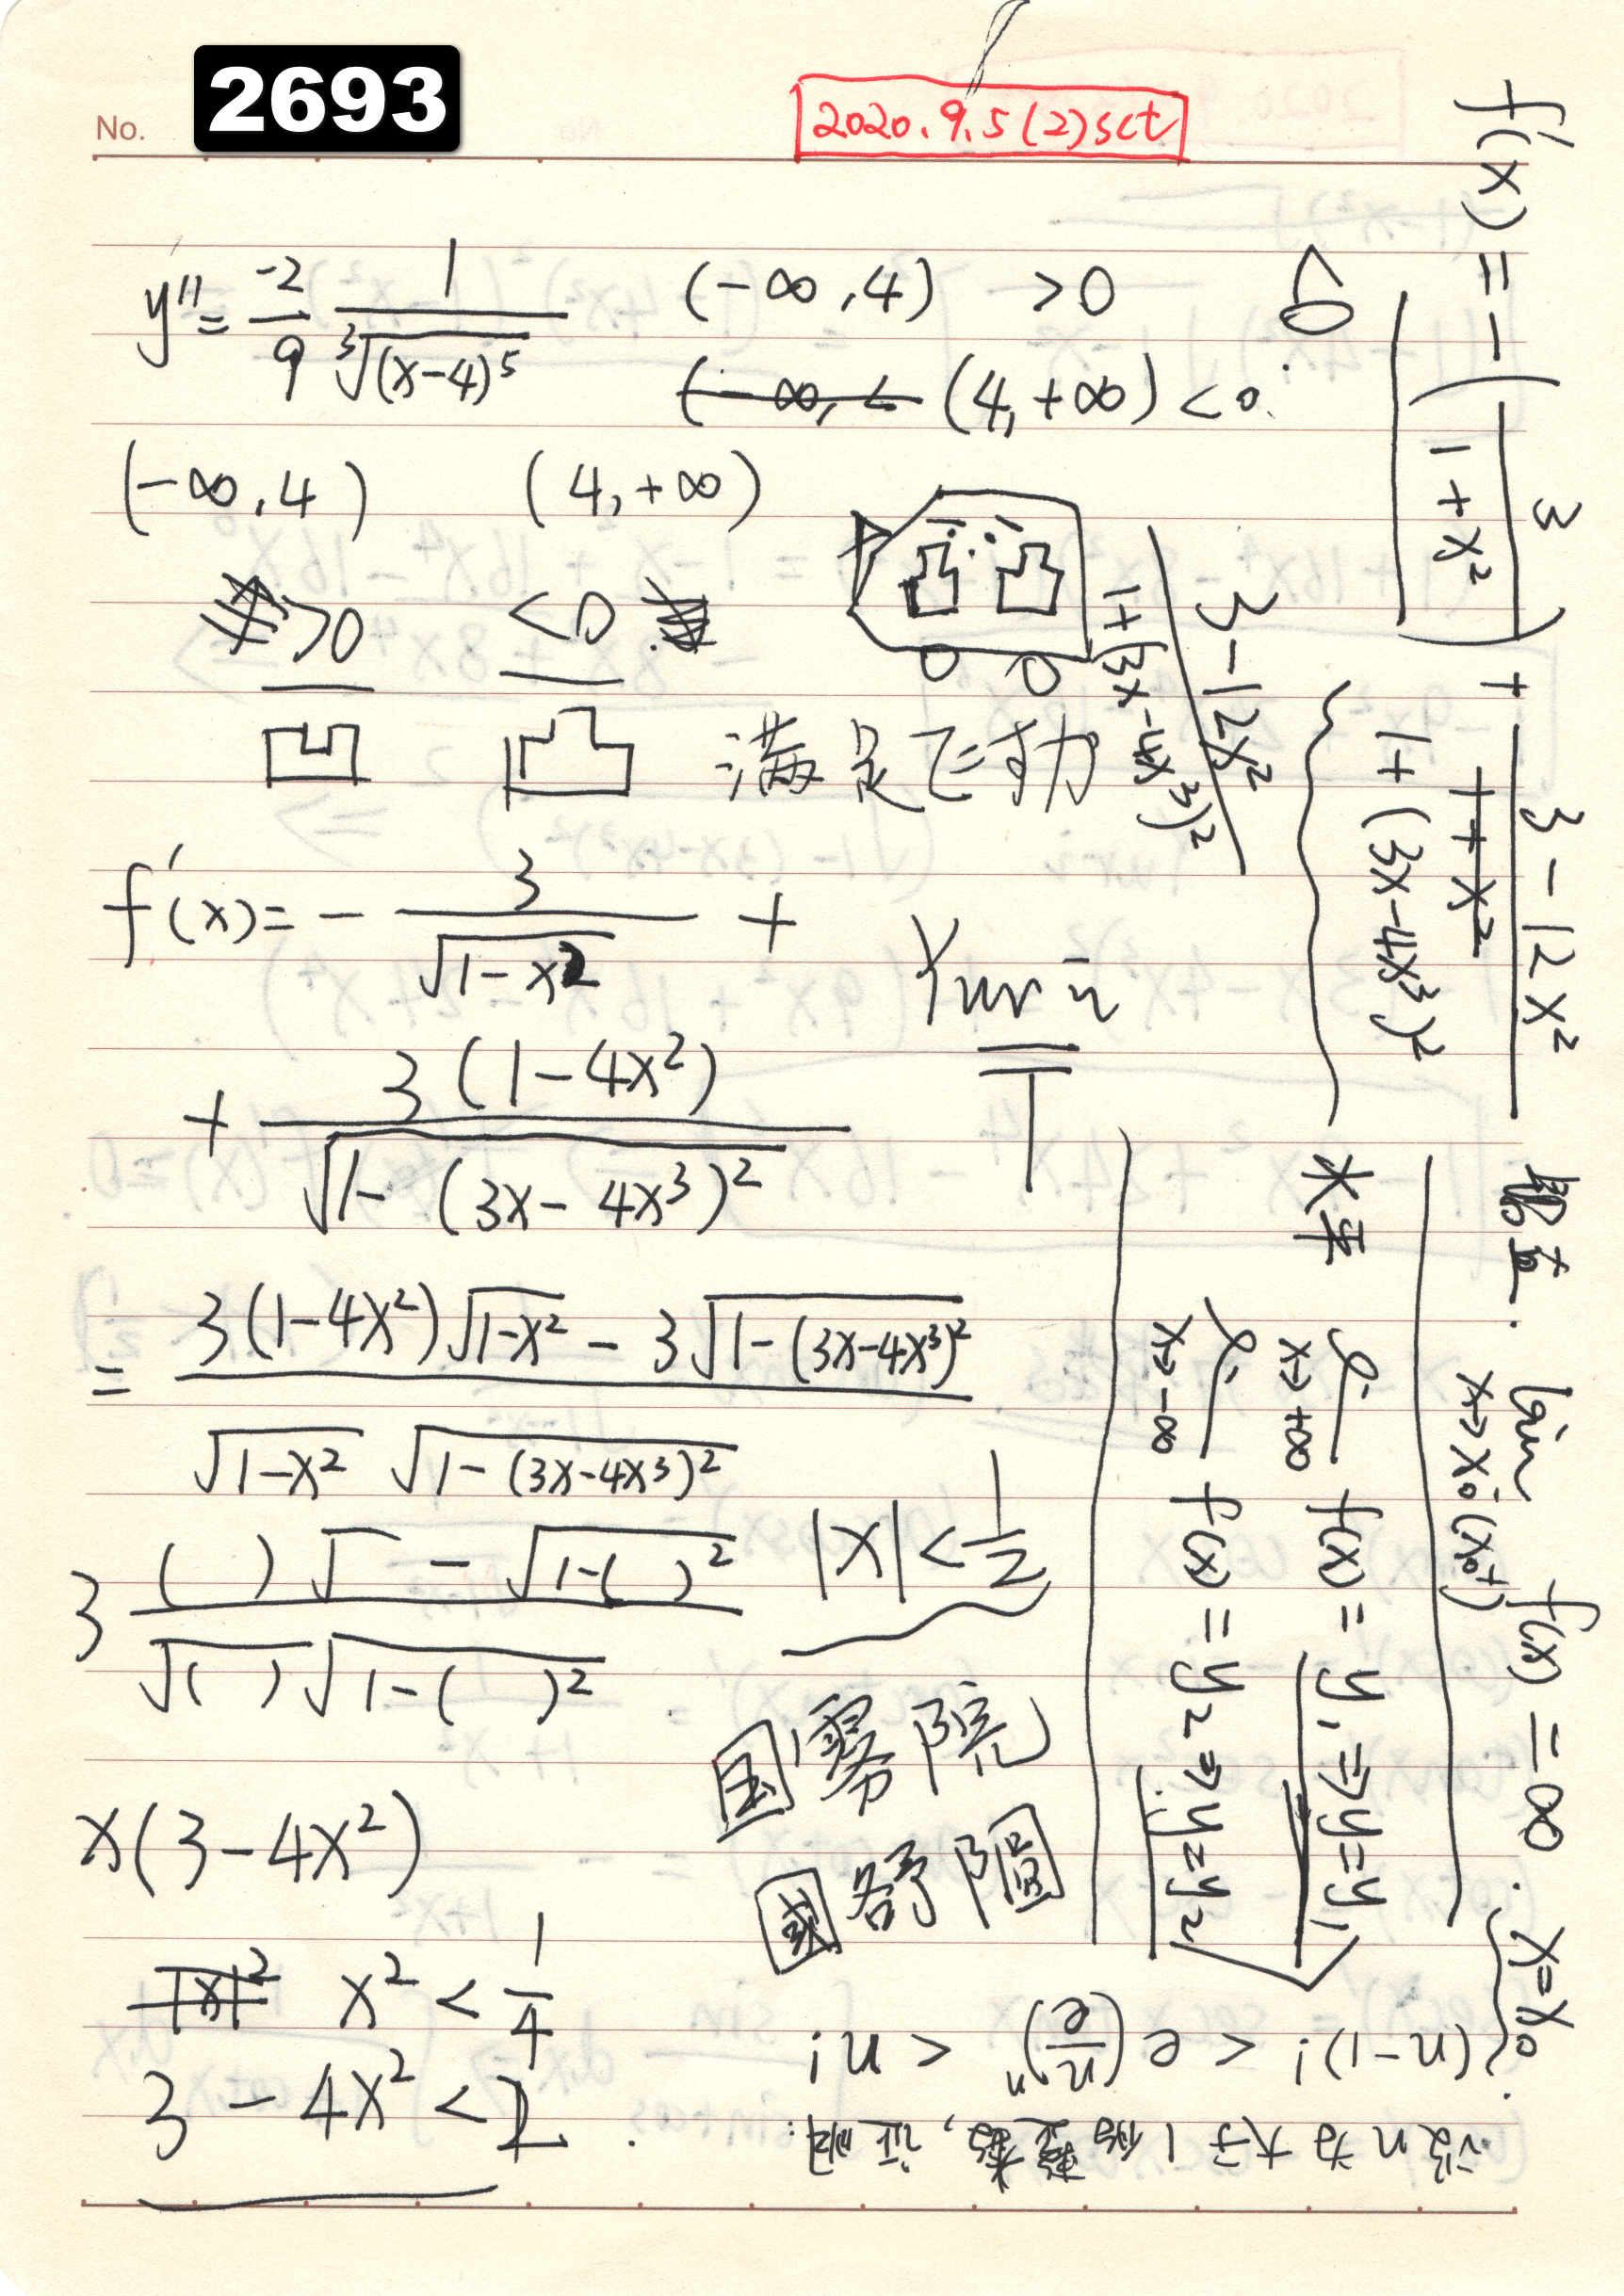 2693
No.
2020.9.5(2)sct
y'' = -2/9 1/∛(x-4)⁵ (-∞,4) >0
(-∞, < (4,+∞) <0.
(-∞,4) (4,+∞)
>0 <0
凹 凸 满足飞扬
凸 凸
f'(x) = - 3/√(1-x²) +
Yurii
+ 3(1-4x²)/√(1-(3x-4x³)²)
= (3(1-4x²)√(1-x²) - 3√(1-(3x-4x³)²))/(√(1-x²) √(1-(3x-4x³)²))
3 (( )√ - √(1-( )²))/(√( ) √(1-( )²)) |x|<1/2
x(3-4x²)
国雾院
國
|x|² x² < 1/4
3-4x² < 2
f'(x) = - (3/(1+x²)) + (3-12x²)/(1+x²)
1+(3x-4x³)²
(3-12x²)/(1+(3x-4x³)²)
lim x→x₀⁻(x₀⁺) f(x) = ∞. x=x₀
水平
x→+∞ f(x) = y₁ ⇒ y=y₁
x→-∞ f(x) = y₂ ⇒ y=y₂
设n为大于1的整数, 证明:
(n-1)! < e(n/e)ⁿ < n!